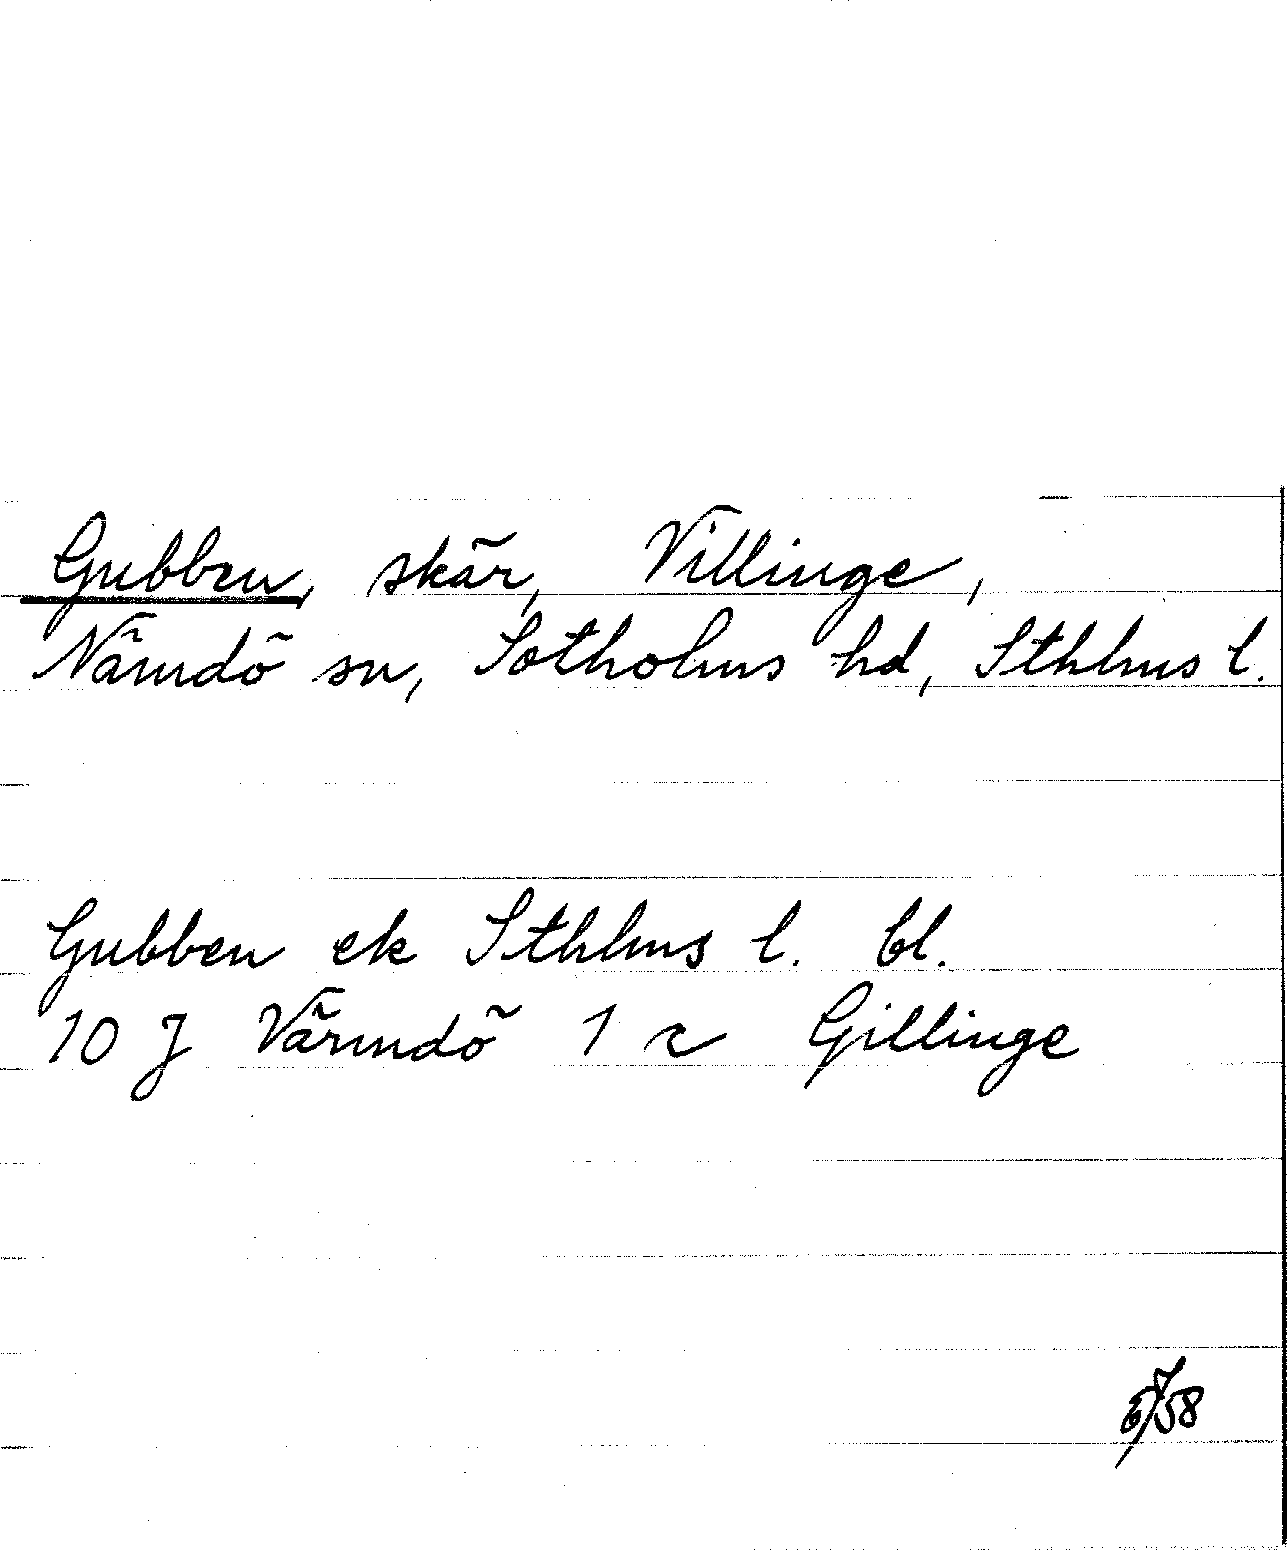 Gubben, skär, Villinge,
Nämdö sn, Sotholms hd, Sthlms l.
Gubben ek Sthlms l. bl.
10 J Värmdö 1 c Gillinge